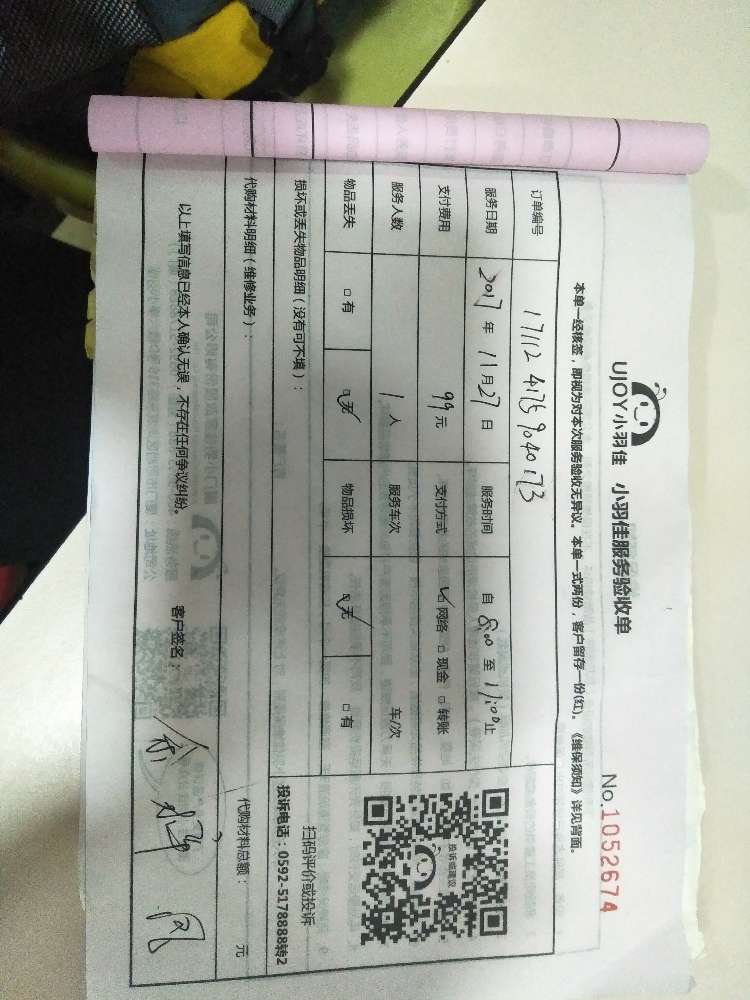 UJOY小羽佳 小羽佳服务验收单
No.1052674
本单一经核签，即视为对本次服务验收无异议。本单一式两份，客户留存一份(红)。《维保须知》详见背面。
订单编号 17112 4175904073
服务日期 2017年11月27日 服务时间 自8:00至11:00止
支付费用 99元 支付方式 ☑网络 □现金 □转账
服务人数 1人 服务车次 车/次
物品丢失 □有 ☑无 物品损坏 ☑无 □有
投诉或建议
扫码评价或投诉
投诉电话：0592-5178888转2
损坏或丢失物品明细（没有可不填）：
代购材料明细（维修业务）： 代购材料总额： 元
以上填写信息已经本人确认无误，不存在任何争议纠纷。 客户签名：